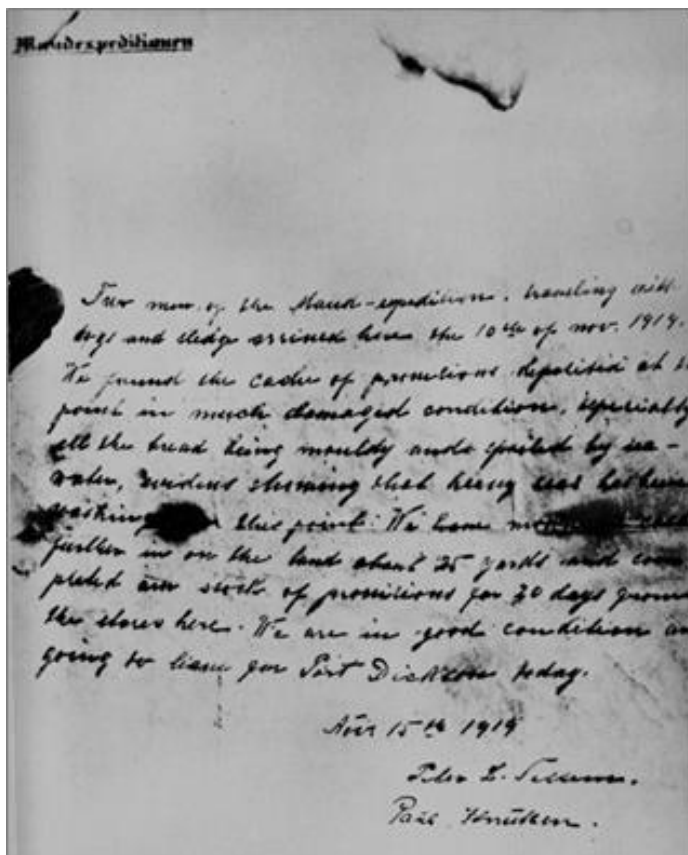 Maudexpeditionen
Two men of the Maud-expedition, traveling with
dogs and sledge arrived here the 10th of nov. 1919.
We found the cache of provisions deposited at
point in much damaged condition, specially
all the bread being mouldy and spoiled by sea-
water, showing that heavy seas
washing this point. We have
further in on the land about 25 yards and com-
pleted our stock of provisions for 30 days from
the stores here. We are in good condition
going to leave for Port Dickson today.
Nov 15th 1919
Peter L. Tessem.
Paul Knutsen.